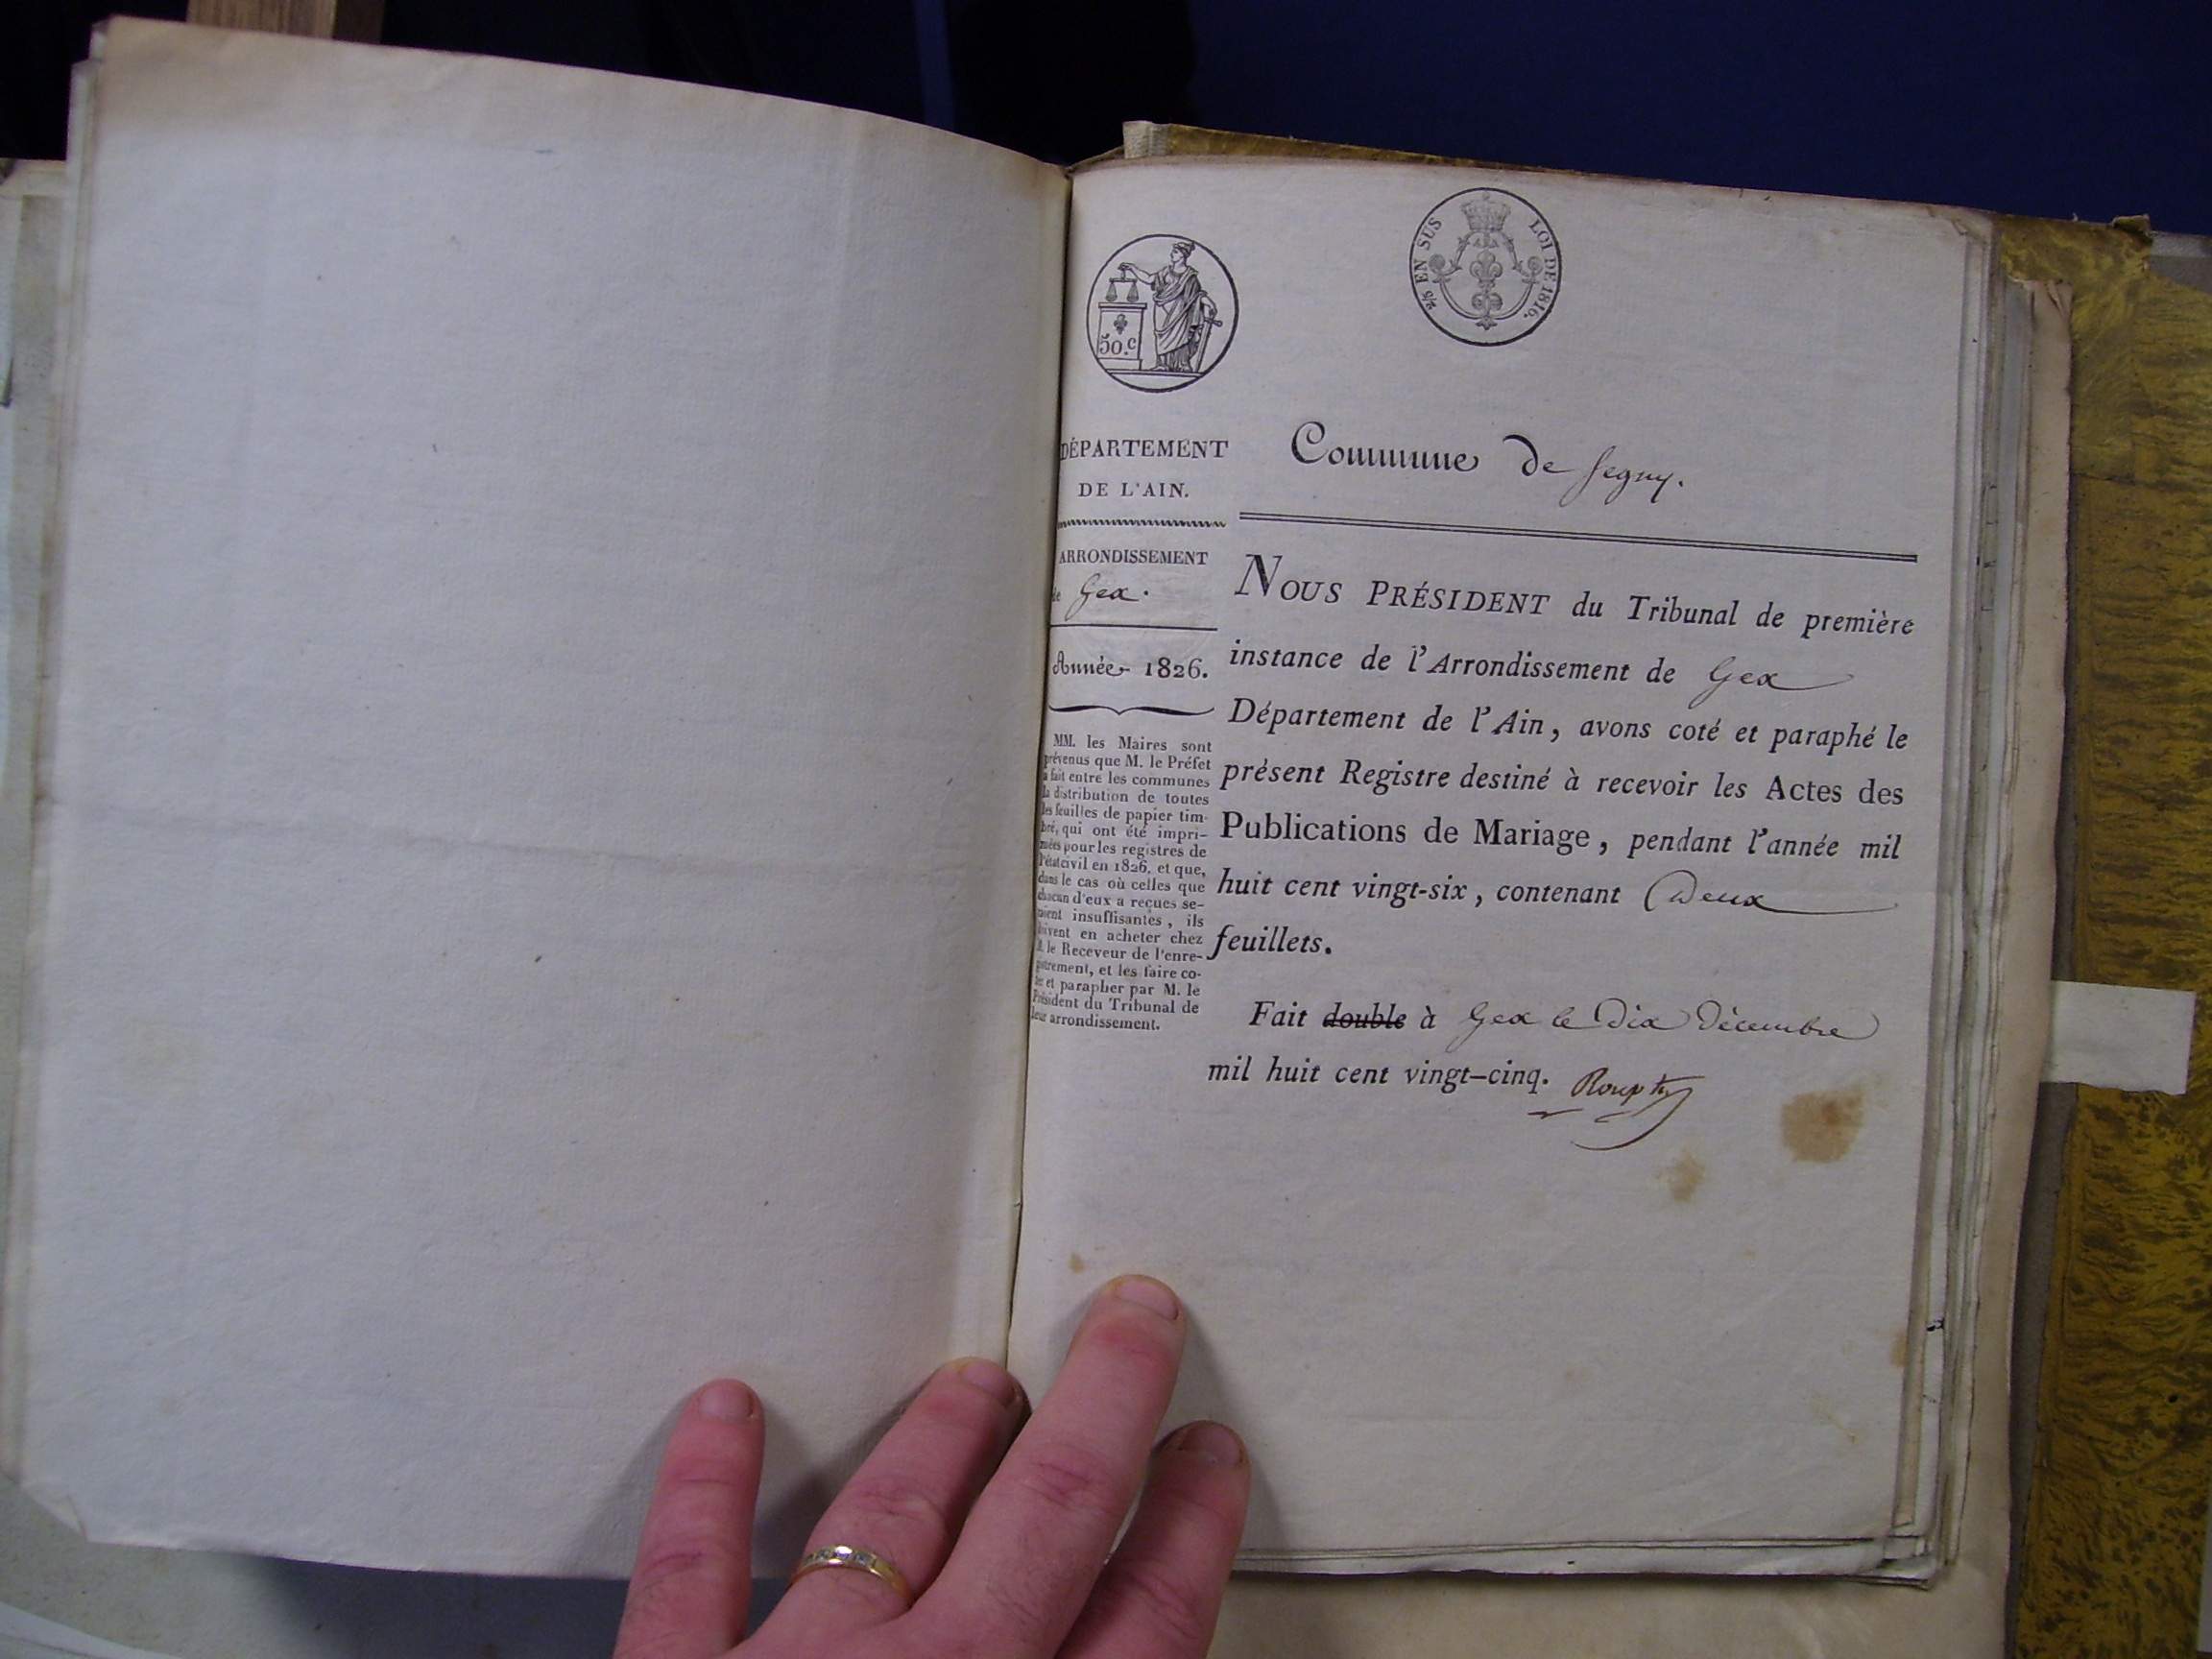 50.c
2/5 EN SUS LOI DE 1816.
DÉPARTEMENT
DE L'AIN.
ARRONDISSEMENT
de Gex.
Année 1826.
MM. les Maires sont
prévenus que M. le Préfet
a fait entre les communes
la distribution de toutes
les feuilles de papier tim-
bré, qui ont été impri-
mées pour les registres de
l'état civil en 1826, et que,
dans le cas où celles que
chacun d'eux a reçues se-
raient insuffisantes, ils
doivent en acheter chez
M. le Receveur de l'enre-
gistrement, et les faire co-
ter et parapher par M. le
Président du Tribunal de
leur arrondissement.
Commune de Segny.
NOUS PRÉSIDENT du Tribunal de première
instance de l'Arrondissement de Gex
Département de l'Ain, avons coté et paraphé le
présent Registre destiné à recevoir les Actes des
Publications de Mariage, pendant l'année mil
huit cent vingt-six, contenant Deux
feuillets.
Fait double à Gex le Dix Décembre
mil huit cent vingt-cinq.